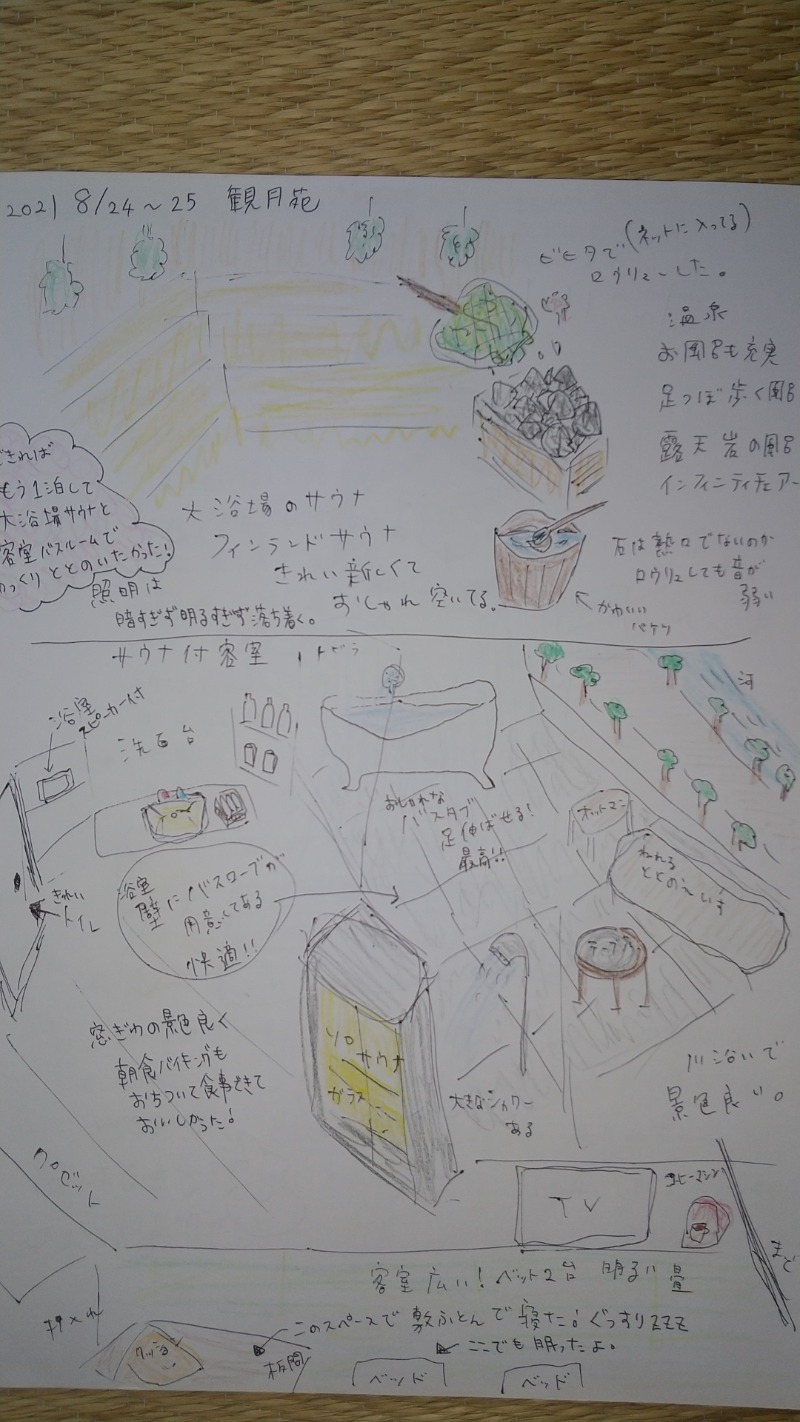 2021 8/24～25 観月苑
(ネットに入ってる)
ビヒタで
ロウリューした。
温泉
お風呂も充実
足つぼ歩く風呂
露天岩の風呂
インフィニティチェアー
できれば
もう1泊して
大浴場サウナと
客室バスルームで
ゆっくりととのいたかった!
大浴場のサウナ
フィンランドサウナ
きれい新しくて
おしゃれ空いてる。
照明は
暗すぎず明るすぎず落ち着く。
石は熱々でないのか
ロウリュしても音が
弱い
かわいい
バケツ
サウナ付客室
トビラ
河
浴室
スピーカー付
洗面台
おしゃれな
バスタブ
足伸ばせる!
最高!!
ねれる
ととの～いす
きれい
トイレ
浴室
壁にバスローブが
用意してある
快適!!
テーブル
窓ぎわの景色良く
朝食バイキングも
おちついて食事できて
おいしかった!
ソロ
サウナ
ガラス
大きなシャワー
ある
川沿いで
景色良い。
クロゼット
TV
コーヒーマシン
まど
客室広い!ベット2台 明るい畳
押入れ
このスペースで敷ふとんで寝た!ぐっすりZZZ
ここでも眠ったよ。
クッション
板間
ベッド
ベッド